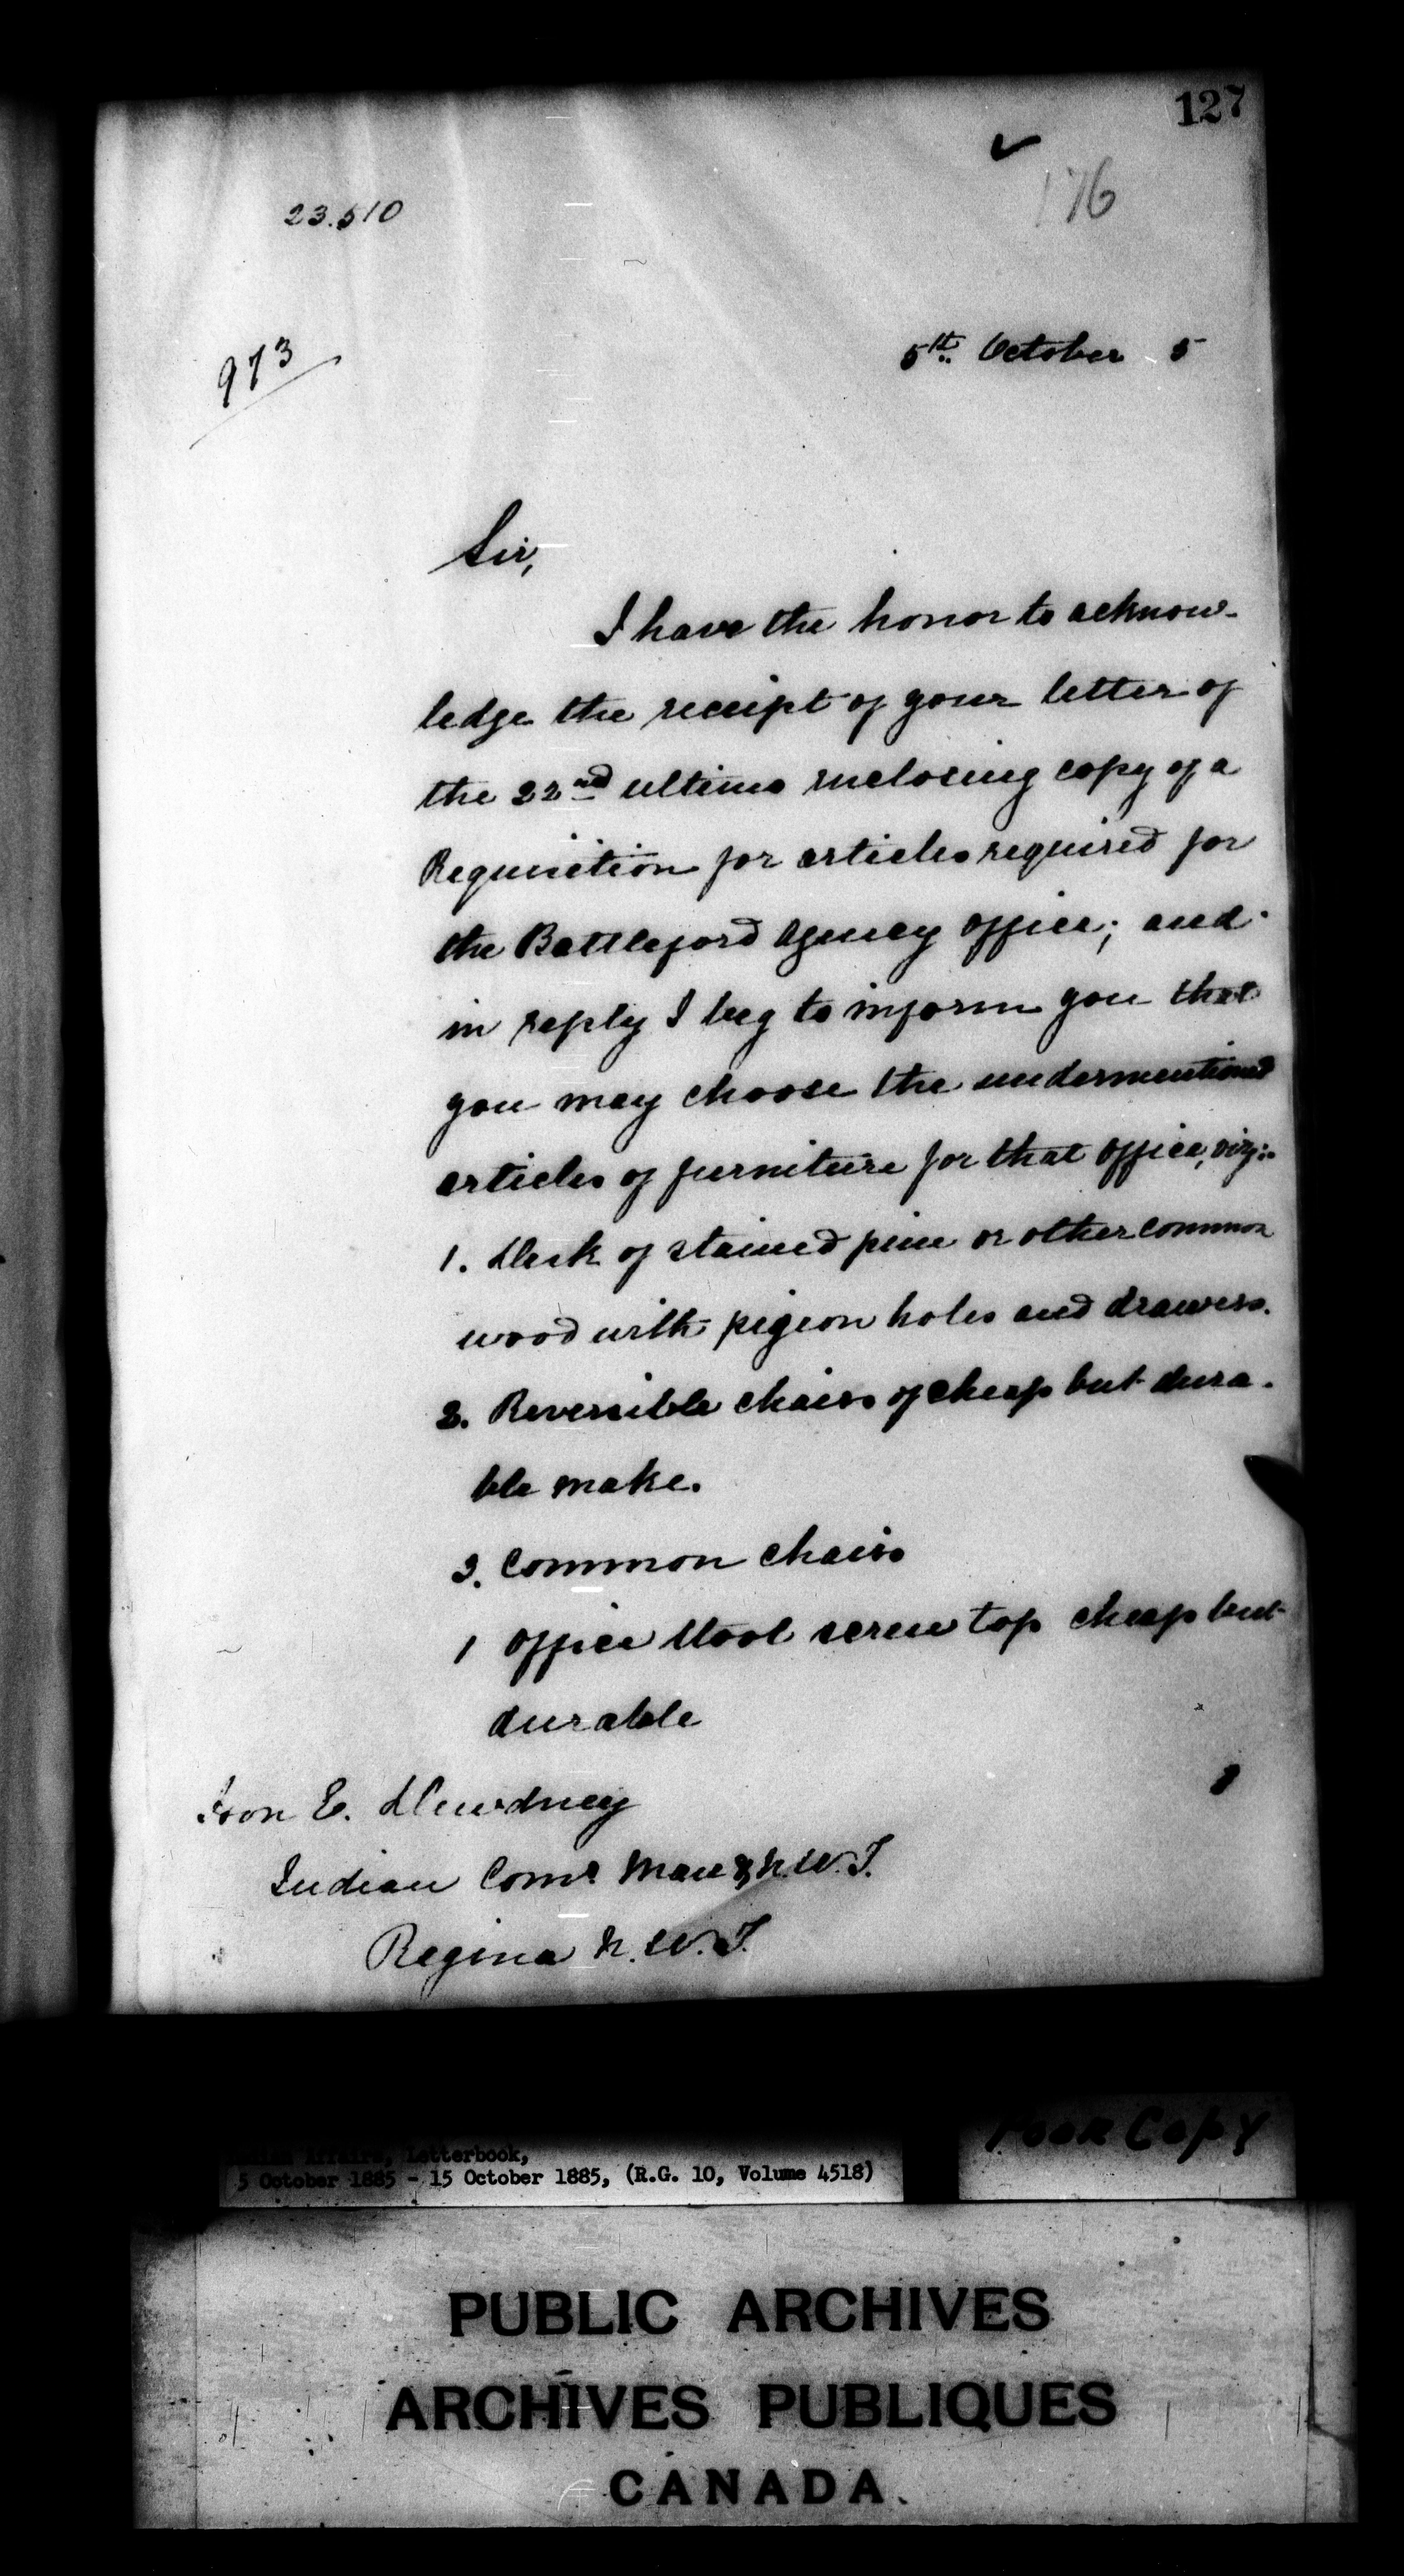 127
176
23.510
973
5th. October 5
Sir,
I have the honor to acknow-
ledge the receipt of your letter of
the 22nd ultimo enclosing copy of a
Requisition for articles required for
the Battleford Agency Office; and
in reply I beg to inform you that
you may choose the undermentioned
articles of furniture for that Office, viz:-
1. Desk of stained pine or other common
wood with pigeon holes and drawers.
2. Reversible chairs of cheap but dura-
ble make.
3. Common chairs
1 Office stool screw top cheap but
durable
Hon E. Dewdney
Indian Comr. Man & N.W.T.
Regina N.W.T.
Poor Copy
Affairs, Letterbook,
5 October 1885 - 15 October 1885, (R.G. 10, Volume 4518)
PUBLIC ARCHIVES
ARCHIVES PUBLIQUES
CANADA.